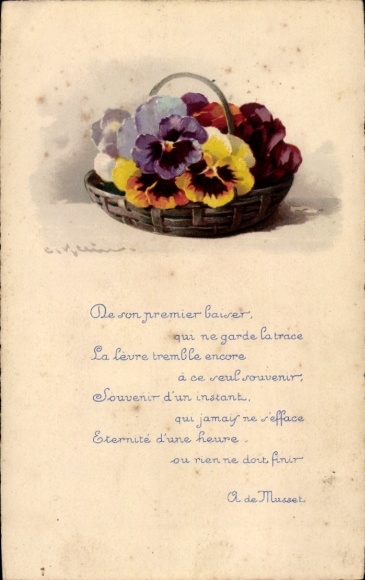 C. Klein.
De son premier baiser,
qui ne garde la trace
La lèvre tremble encore
à ce seul souvenir,
Souvenir d'un instant,
qui jamais ne s'efface
Eternité d'une heure.
ou rien ne doit finir
A de Musset